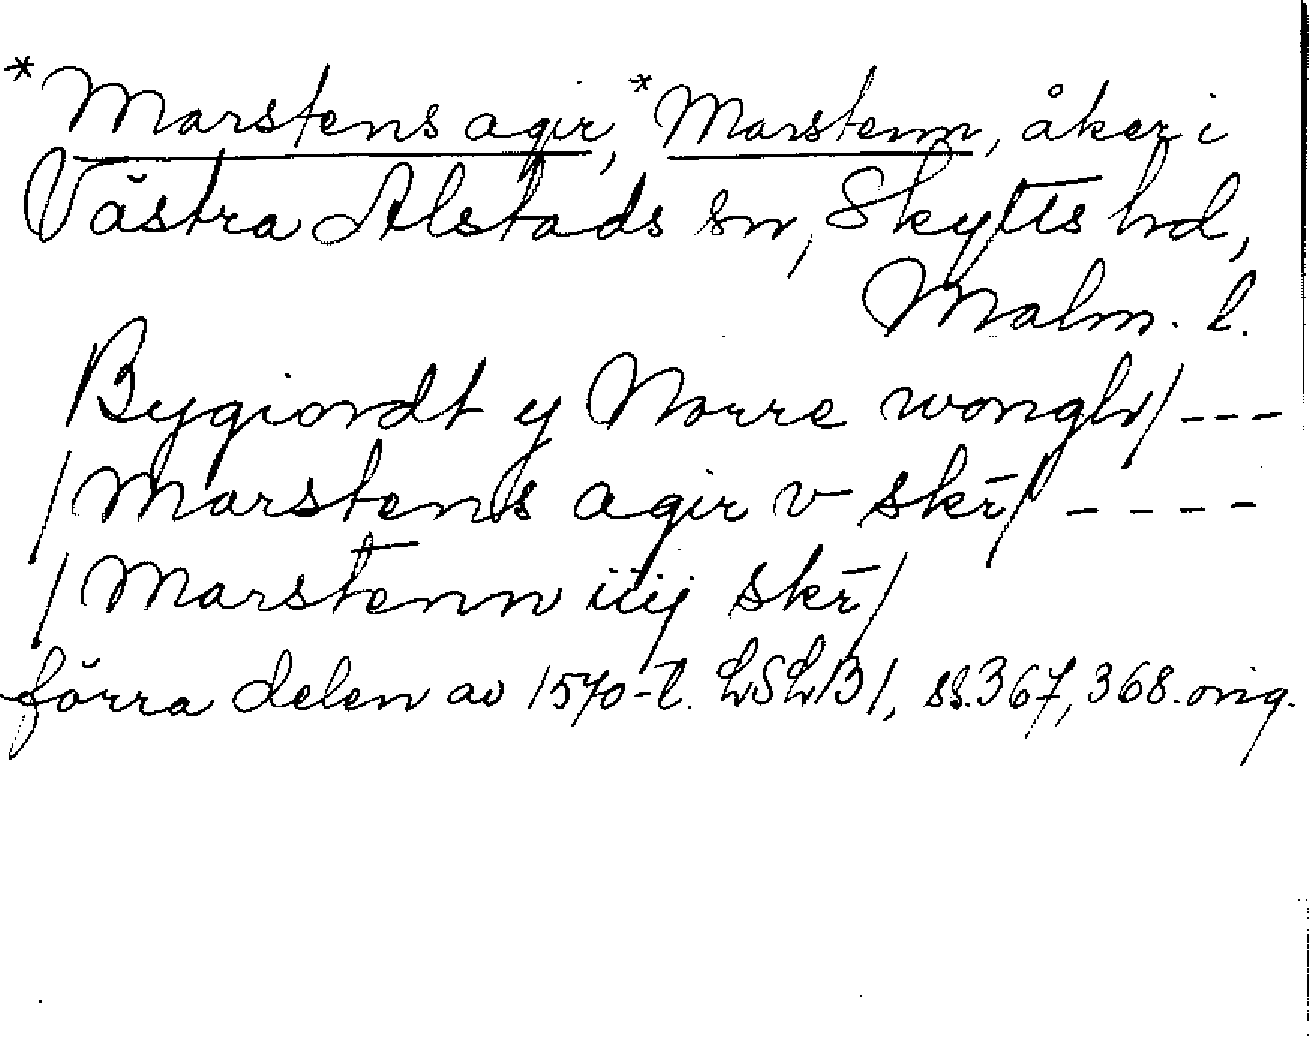 *Marstens agir, *Marstenn, åker i
Västra Alstads sn, Skytts hd,
Malm. l.
Bygiordt y Norre wongh/ ---
/Marstens agir v skr̄/ ----
/Marstenn iiij skr̄/
förra delen av 1570-t. LSLB1, ss. 367, 368. orig.